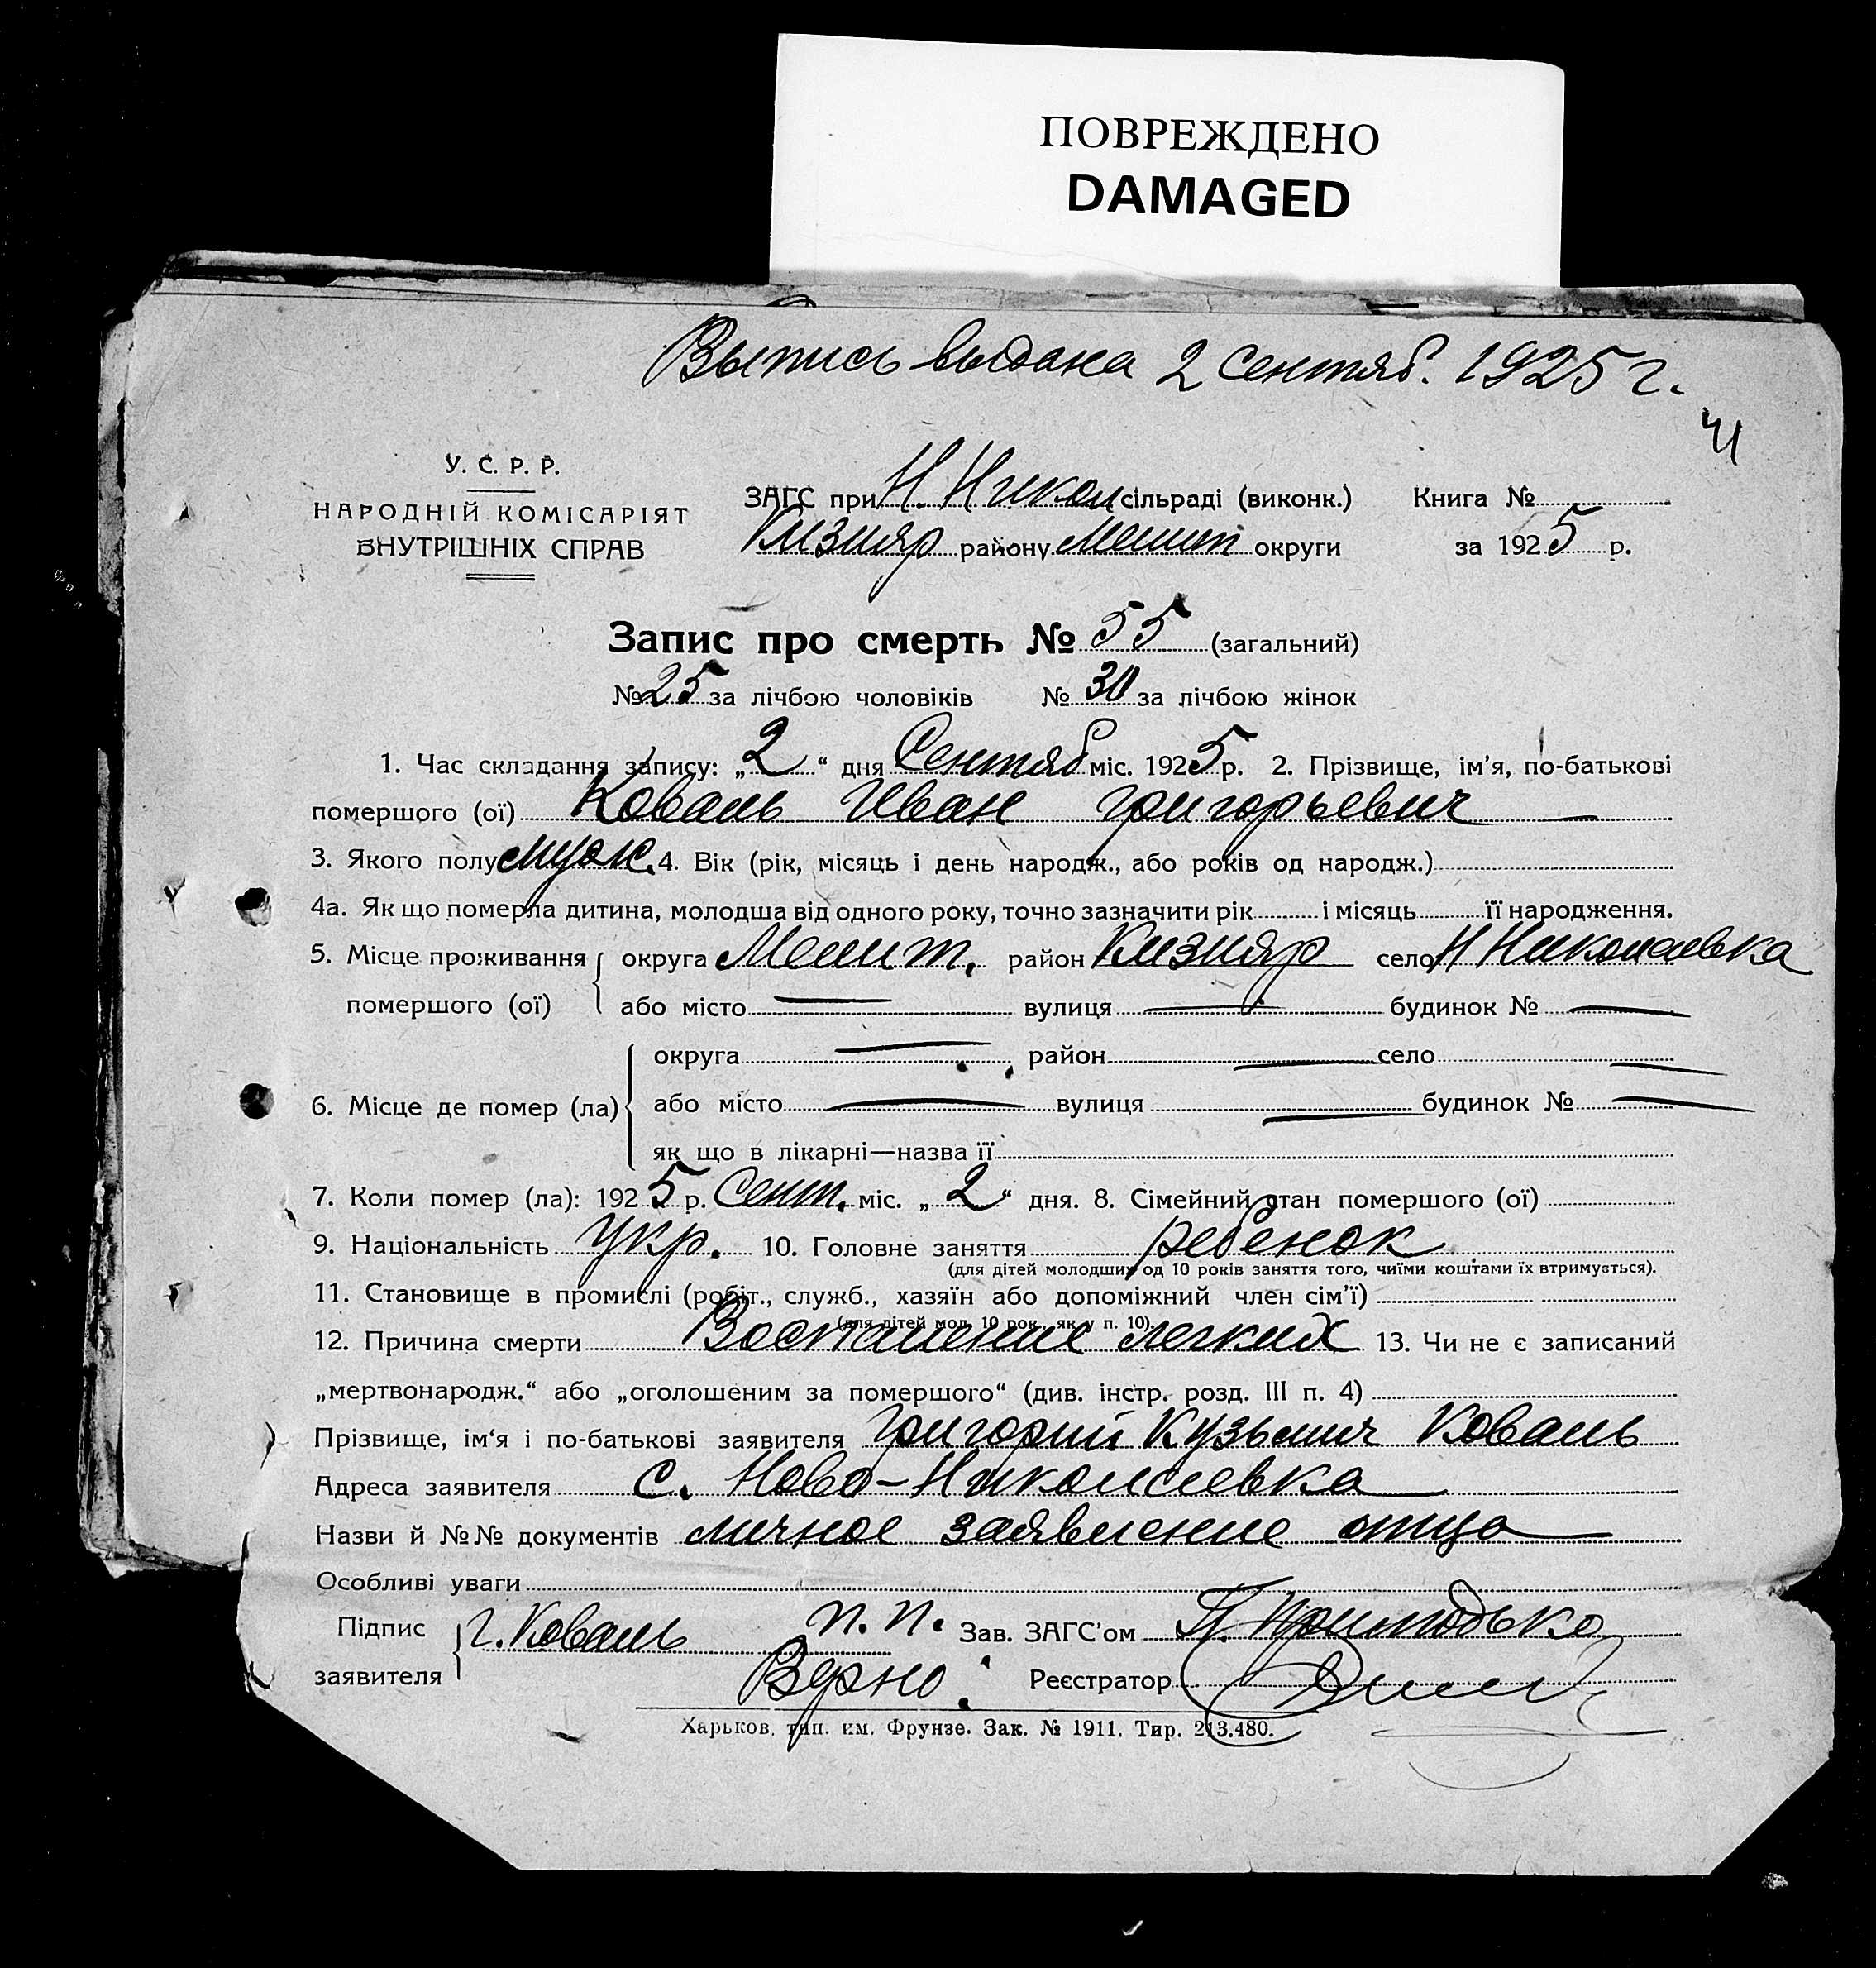 ПОВРЕЖДЕНО
DAMAGED
Выпись выдана 2 сентяб. 1925 г.
41
У. С. Р. Р.
НАРОДНІЙ КОМІСАРІЯТ
ВНУТРІШНІХ СПРАВ
ЗАГС при Н. Никол сільраді (виконк.) Книга №
Кизияр району Мелит округи за 1925 р.
Запис про смерть № 55 (загальний)
№ 25 за лічбою чоловіків № 30 за лічбою жінок
1. Час складання запису: „2“ дня Сентяб міс. 1925 р. 2. Прізвище, ім'я, по-батькові
помершого (ої) Коваль Иван Григорьевич —
3. Якого полу муж. 4. Вік (рік, місяць і день народж., або років од народж.)
4а. Як що померла дитина, молодша від одного року, точно зазначити рік і місяць її народження.
5. Місце проживання помершого (ої) округа Мелит. район Кизияр село Н Николаевка
або місто — вулиця — будинок № —
6. Місце де помер (ла) округа — район — село —
або місто — вулиця — будинок № —
як що в лікарні—назва її
7. Коли помер (ла): 1925 р. Сент. міс. „2“ дня. 8. Сімейний стан помершого (ої)
9. Національність Укр. 10. Головне заняття ребенок
(для дітей молодших од 10 років заняття того, чиїми коштами їх втримується).
11. Становище в промислі (робіт., служб., хазяїн або допоміжний член сім'ї)
(для дітей мол. 10 рок., як у п. 10).
12. Причина смерти Воспаление легких 13. Чи не є записаний
„мертвонародж.“ або „оголошеним за помершого“ (див. інстр. розд. III п. 4)
Прізвище, ім'я і по-батькові заявителя Григорий Кузьмич Коваль
Адреса заявителя с. Ново-Николаевка
Назви й №№ документів личное заявление отца
Особливі уваги
Підпис заявителя Г. Коваль п.п. Зав. ЗАГС'ом П. Приходько
Верно: Реєстратор
Харьков, тип. им. Фрунзе. Зак. № 1911. Тир. 213.480.